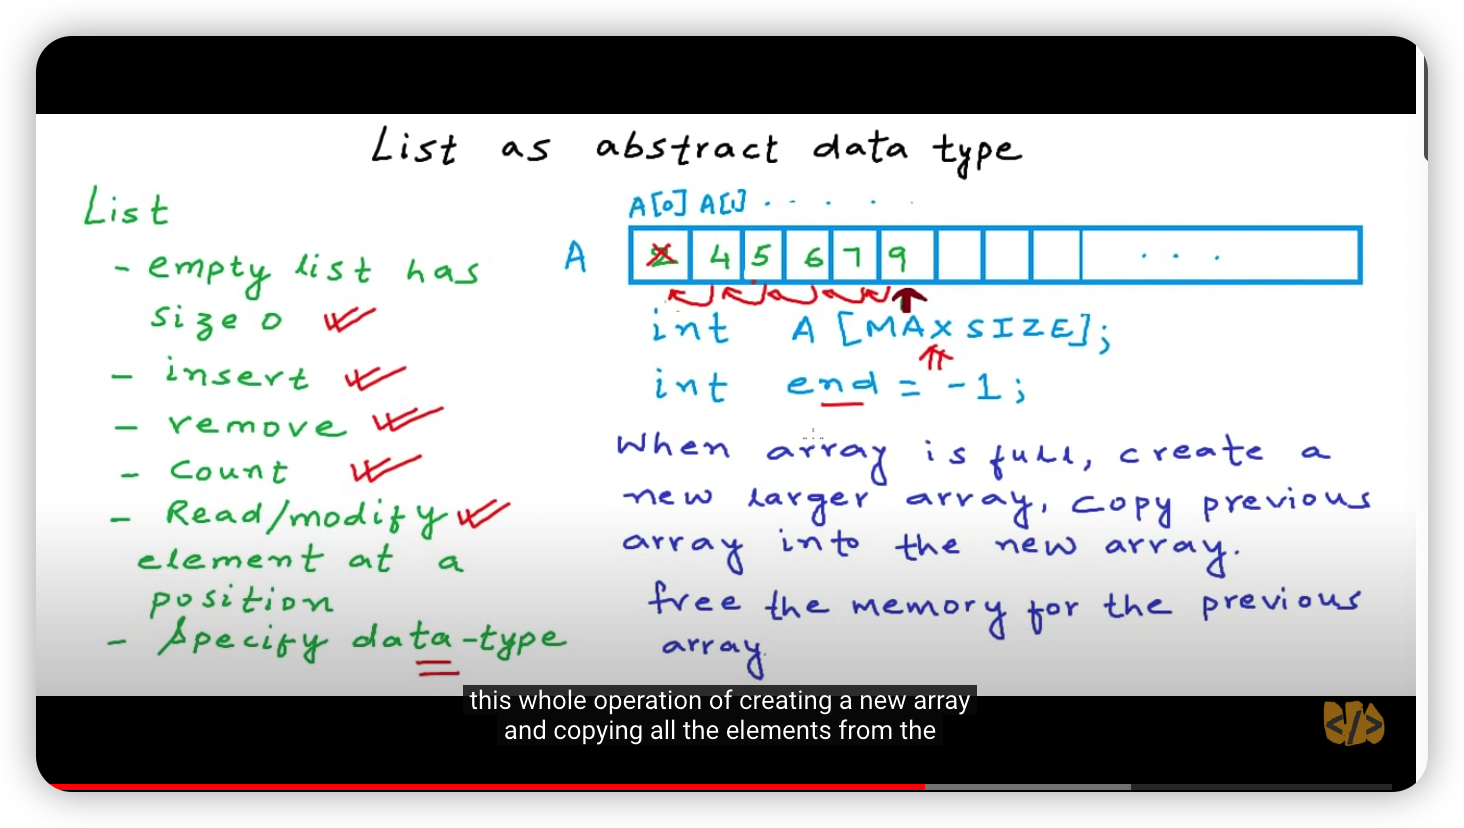 List as abstract data type
List
- empty list has
size 0
- insert
- remove
- Count
- Read/modify
element at a
position
- Specify data-type
A[0] A[1] . . . . .
A 2 4 5 6 7 9 . . .
int A [MAXSIZE];
int end = -1;
When array is full, create a
new larger array, copy previous
array into the new array.
free the memory for the previous
array.
this whole operation of creating a new array
and copying all the elements from the
</>